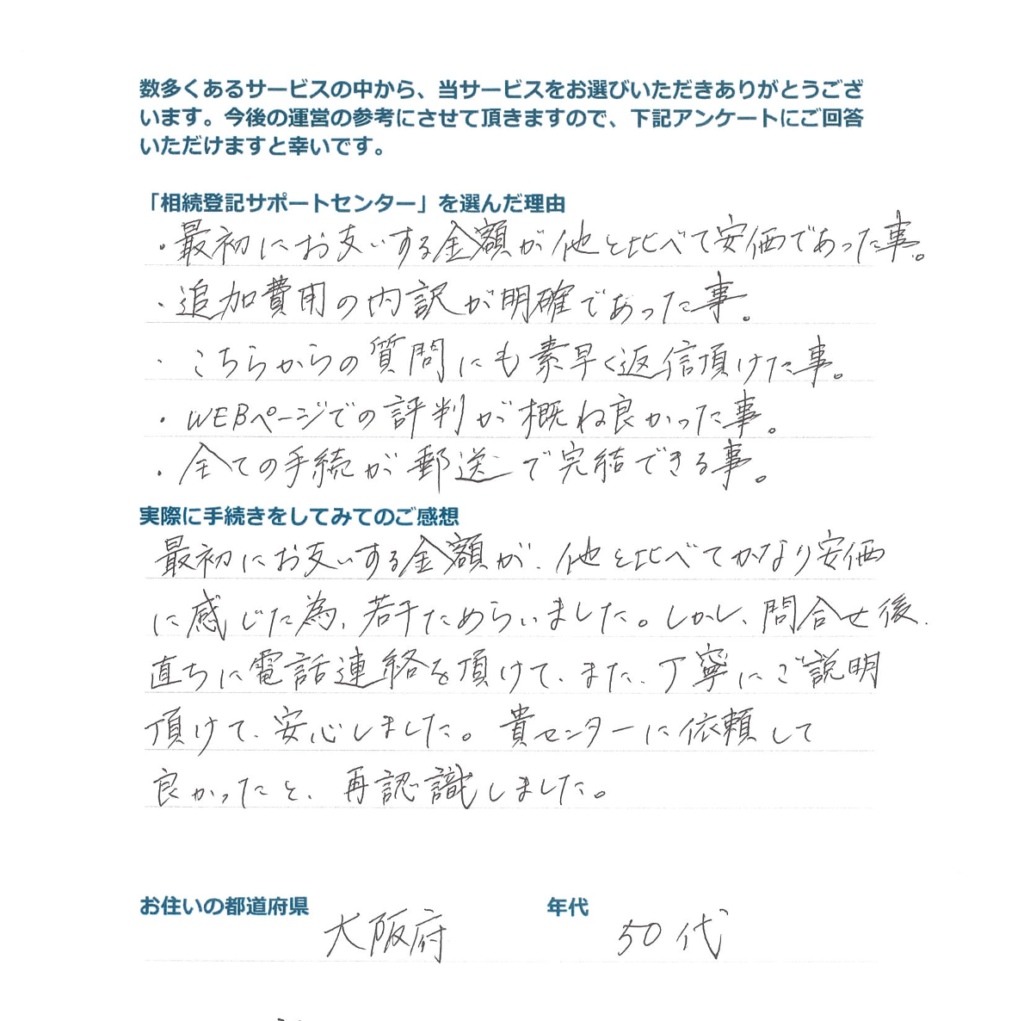 数多くあるサービスの中から、当サービスをお選びいただきありがとうござ
います。今後の運営の参考にさせて頂きますので、下記アンケートにご回答
いただけますと幸いです。
「相続登記サポートセンター」を選んだ理由
・最初にお支いする金額が他と比べて安価であった事。
・追加費用の内訳が明確であった事。
・こちらからの質問にも素早く返信頂けた事。
・WEBページでの評判が概ね良かった事。
・全ての手続が郵送で完結できる事。
実際に手続きをしてみてのご感想
最初にお支いする金額が、他と比べてかなり安価
に感じた為、若干ためらいました。しかし、問合せ後、
直ちに電話連絡を頂けて、また、丁寧にご説明
頂けて、安心しました。貴センターに依頼して
良かったと、再認識しました。
お住いの都道府県 大阪府 年代 50代